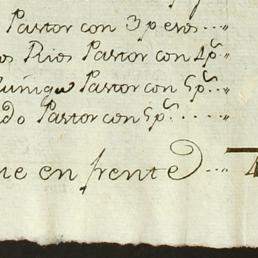 Pastor con 3 pesos...
os Rios Pastor con 4 p.s
uñiga Pastor con 5 p.s...
do Pastor con 5 p.s....
ue en frente ....